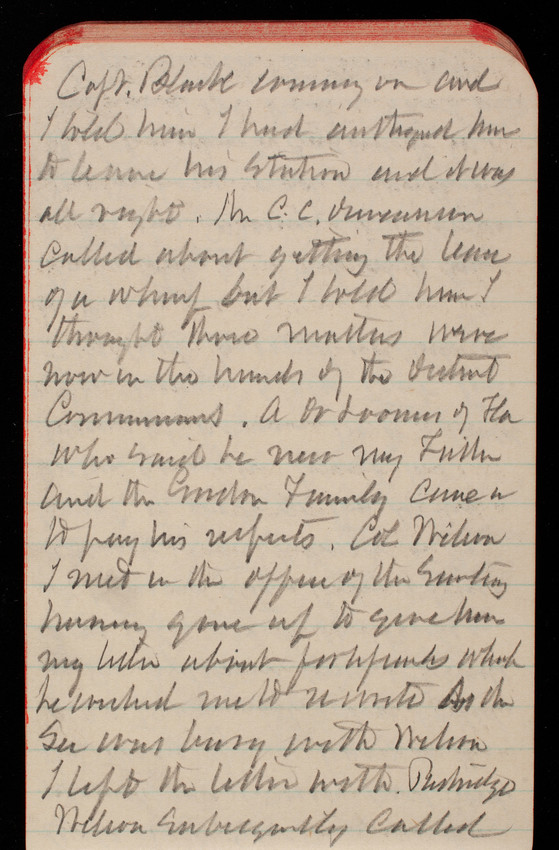 Capt. Black coming in and
I told him I had authorized him
to leave his station and it was
all right. Mr C. C. Duncanson
called about getting the lease
of a wharf but I told him I
thought those matters were
now in the hands of the District
Commissioners. A Dr of Fla
who said he knew my Father
and the Gordon Family came in
to pay his respects. Col Wilson
I met in the office of the Secretary
having gone up to give him
my letter about which
he wished me to rewrite As the
Sec was busy with Wilson
I left the letter with Partridge
Wilson subsequently called